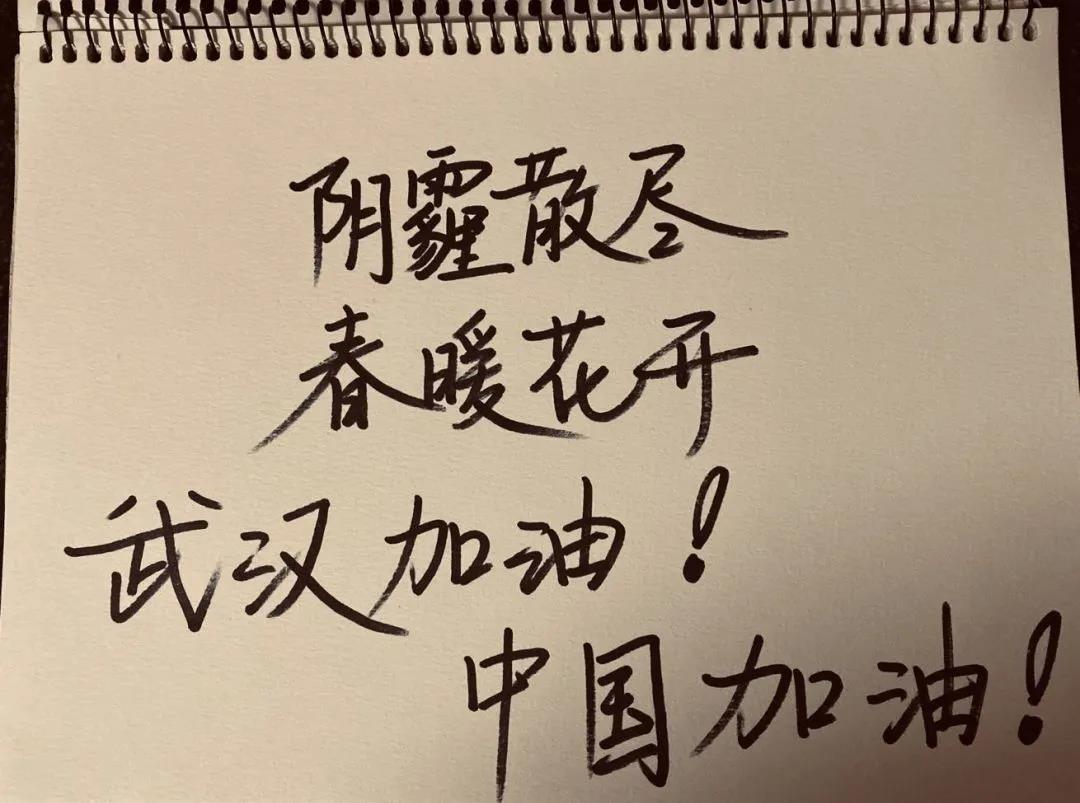 阴霾散尽
春暖花开
武汉加油！
中国加油！